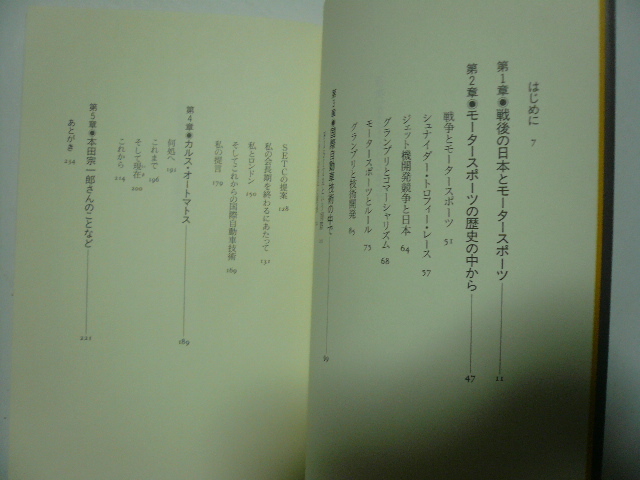 はじめに 7
第1章●戦後の日本とモータースポーツ 11
第2章●モータースポーツの歴史の中から 47
戦争とモータースポーツ 51
シュナイダー・トロフィー・レース 57
ジェット機開発競争と日本 64
グランプリとコマーシャリズム 68
モータースポーツとルール 75
グランプリと技術開発 85
第3章●国際自動車技術の中で
SETCの提案 128
私の会長期を終わるにあたって 132
私とロンドン 150
そしてこれからの国際自動車技術 169
私の提言 179
第4章●カルス・オートマトス 189
何処へ 192
これまで 196
そして現在 200
これから 214
第5章●本田宗一郎さんのことなど 221
あとがき 224